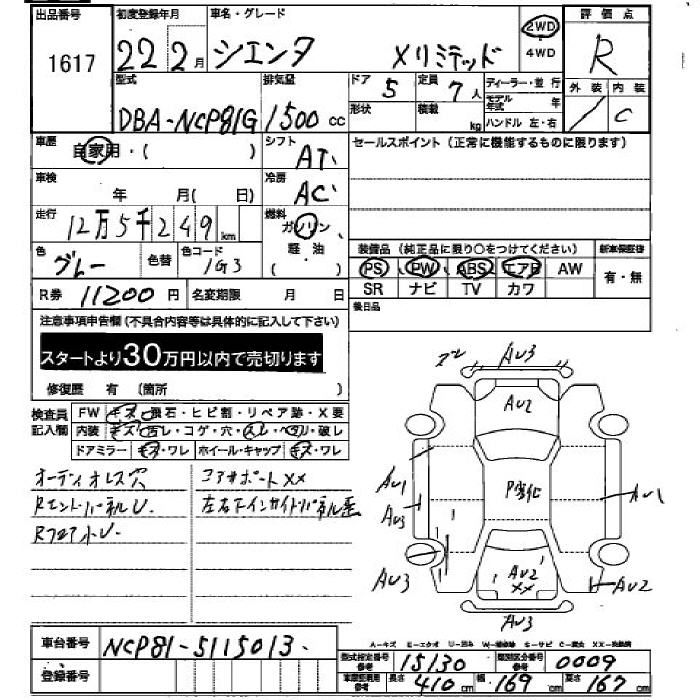 出品番号 初度登録年月 車名・グレード 2WD 評価点
1617 22 2月 シエンタ Xリミテッド 4WD R
型式 排気量 ドア 5 定員 7人 ディーラー・並行 外装 内装
DBA-NCP81G 1500cc 形状 積載 kg モデル年式 年 / C
ハンドル 左・右
車歴 自家用・( ) シフト AT セールスポイント(正常に機能するものに限ります)
車検 年 月( 日) 冷房 AC
走行 12万5千249km 燃料 ガソリン、
色 グレー 色替 色コード 1G3 軽・油( ) 装備品(純正品に限り○をつけてください) 新車保証書
PS PW ABS エアB AW 有・無
R券 11200円 名変期限 月 日 SR ナビ TV カワ
後日品
注意事項申告欄(不具合内容等は具体的に記入して下さい)
スタートより30万円以内で売切ります
修復歴 有(箇所 )
検査員記入欄 FW キズ・飛石・ヒビ割・リペア跡・X要
内装 キズ・汚レ・コゲ・穴・スレ・ヘタリ・破レ
ドアミラー キズ・ワレ ホイール・キャップ キズ・ワレ
オーディオレス穴 コアサポートXX
RエンドパネルU 左右下インサイドパネル歪
RフロアU
AU3
AU2
AU1
AU3
P劣化
AU1
AU3
AU2
XX
AU2
AU3
車台番号 NCP81-5115013
A-キズ E-エクボ U-凹み
登録番号 型式指定番号 参考 15130 類別区分番号 参考 0009
長さ 410cm 幅 169cm 高さ 167cm